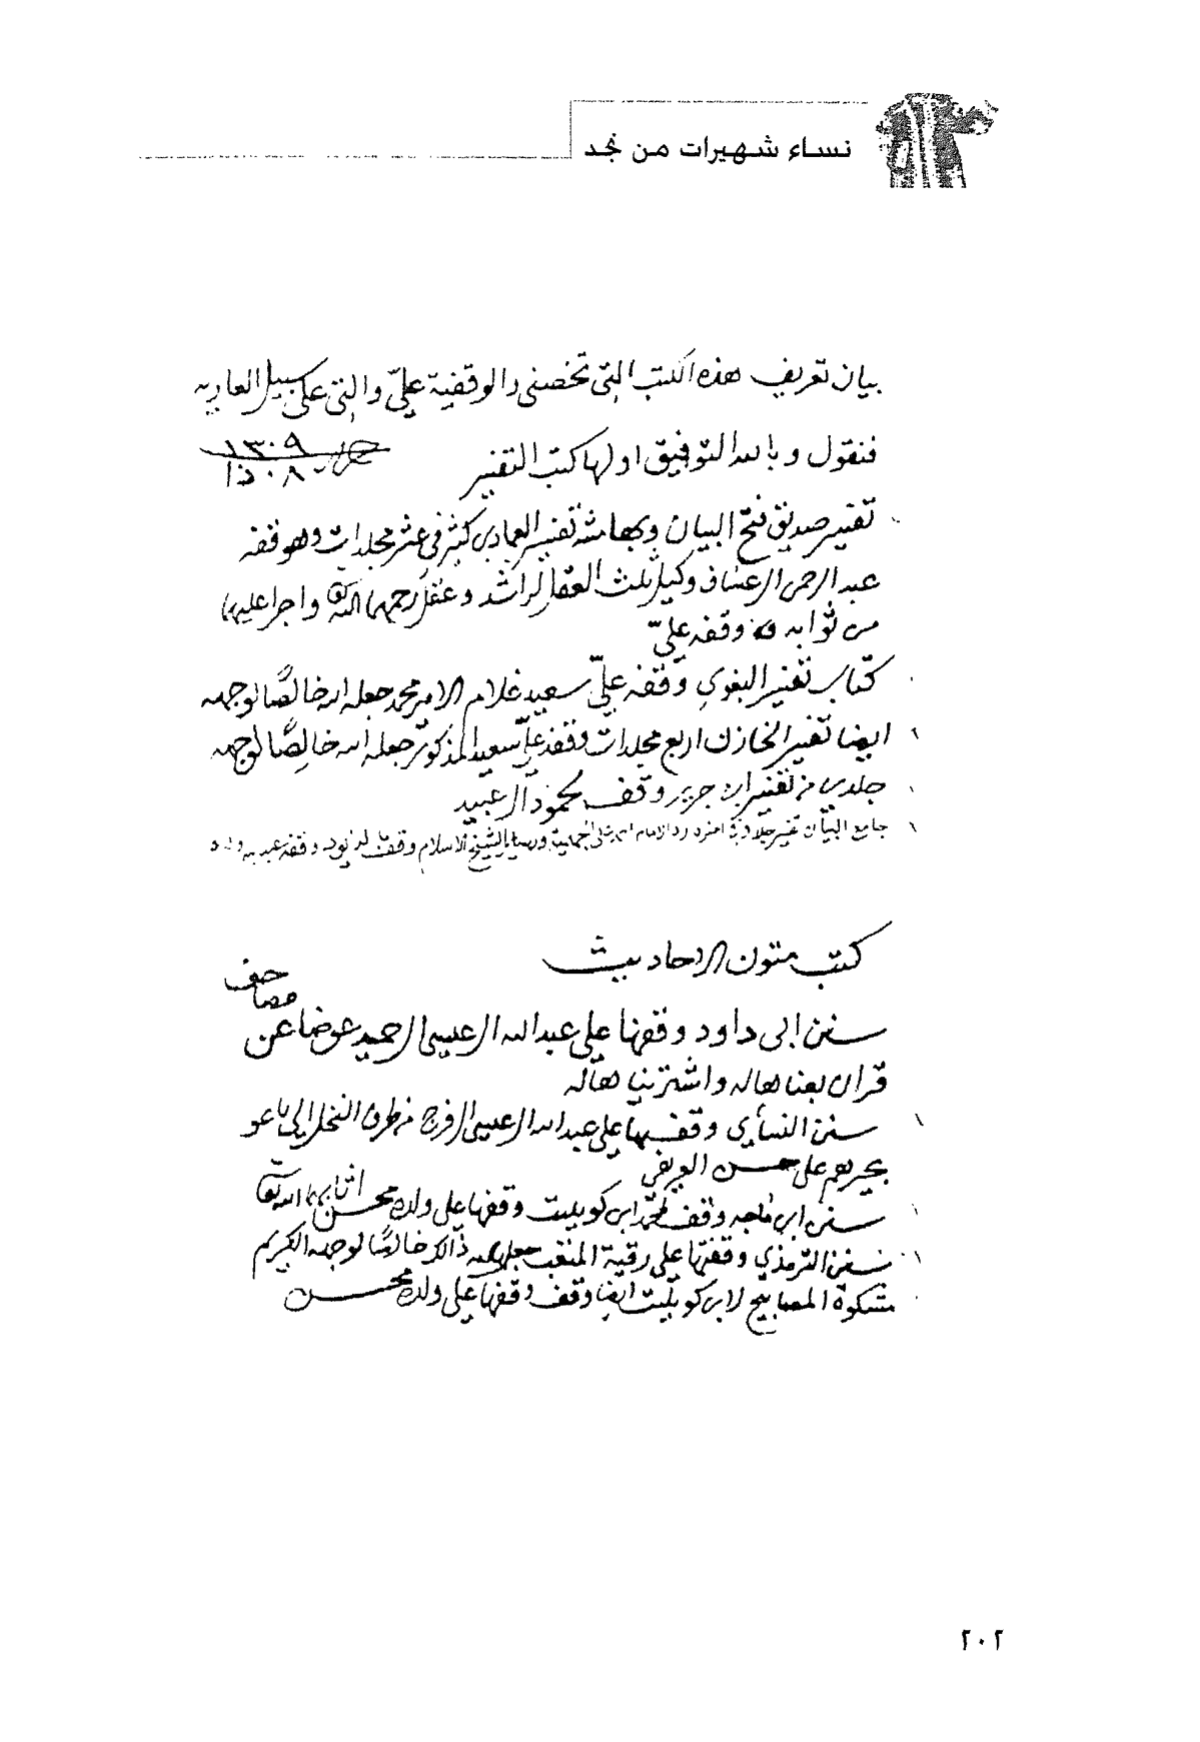 نساء شهيرات من نجد
بيان تعريف هذه الكتب التي تخصني والوقفية عليّ والتي على سبيل العاريه
فنقول وبالله التوفيق اولها كتب التفسير
١٣٠٩
تفسير صديق فتح البيان وبهامشه تفسير العماد بن كثير في عشر مجلدات وهو وقفه
عبد الرحمن العساف وكيل ثلث العقل لراشد وعقل رحمهما الله واجرا عليهما
من ثوابه وقفه عليّ
كتاب تفسير البغوي وقفه عليّ سعيد غلام الامير محمد جعله الله خالصًا لوجهه
ايضا تفسير الخازن اربع مجلدات وقفه عليّ سعيد المذكور جعله الله خالصًا لوجهه
جلدين من تفسير ابن جرير وقف حمود العبيد
جامع البيان تفسير رد الامام احمد على الجهمية الشيخ الاسلام وقف
كتب متون الاحاديث
مصاحف
سنن ابي داود وقفها علي عبد الله العيسى الحميد عوضا عن
قران بعنا هاله واشترينا هاله
سنن النسأي وقفها علي عبد الله العيسى الفرج من طرف النخل الي باعو
بحريهم على حسن
سنن ابن ماجه وقف لمحمد ابن كويليت وقفها على ولده محسن اثابهما الله
سنن الترمذي وقفتها علي رقية المنقب جعل الله ذالك خالصًا لوجهه الكريم
مشكوة المصابيح لابن كويليت ايضا وقف وقفها على ولده محسن
٢٠٢